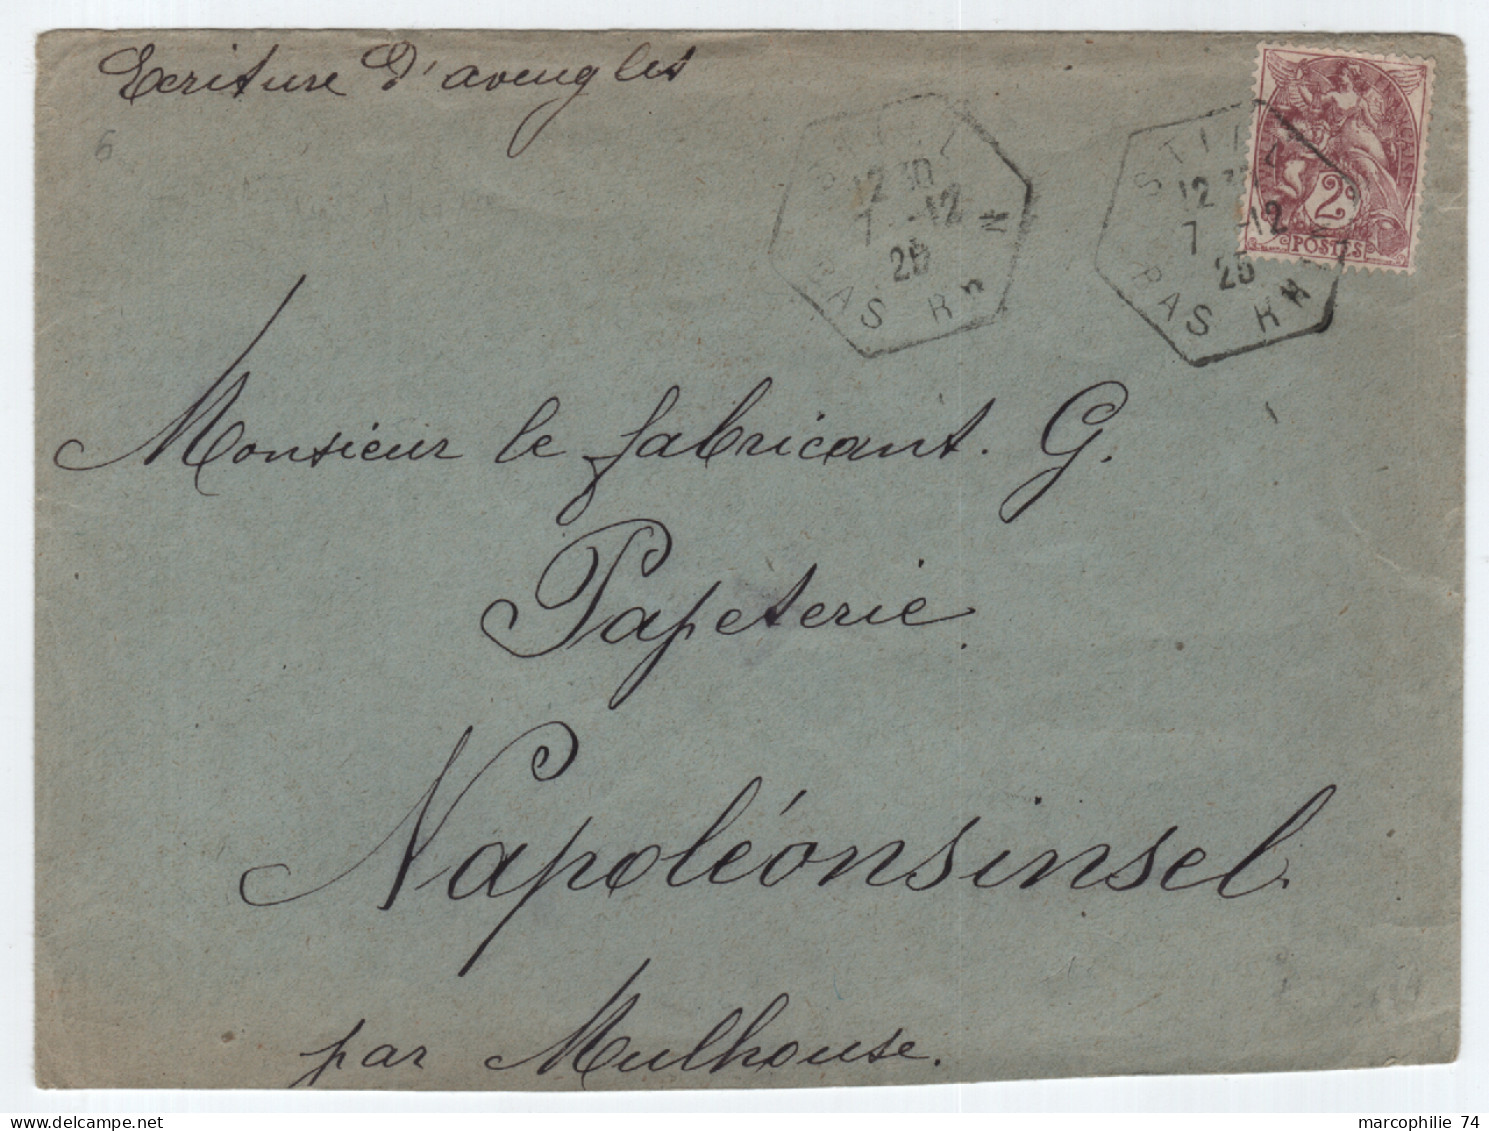 Ecriture d'aveugles
6
STILL
12 30
7 -12
25
BAS RHIN
STILL
12 30
7 -12
25
BAS RHIN
2c
POSTES
Monsieur le fabricant. G.
Papeterie
Napoléonsinsel.
par Mulhouse.
marcophilie 74